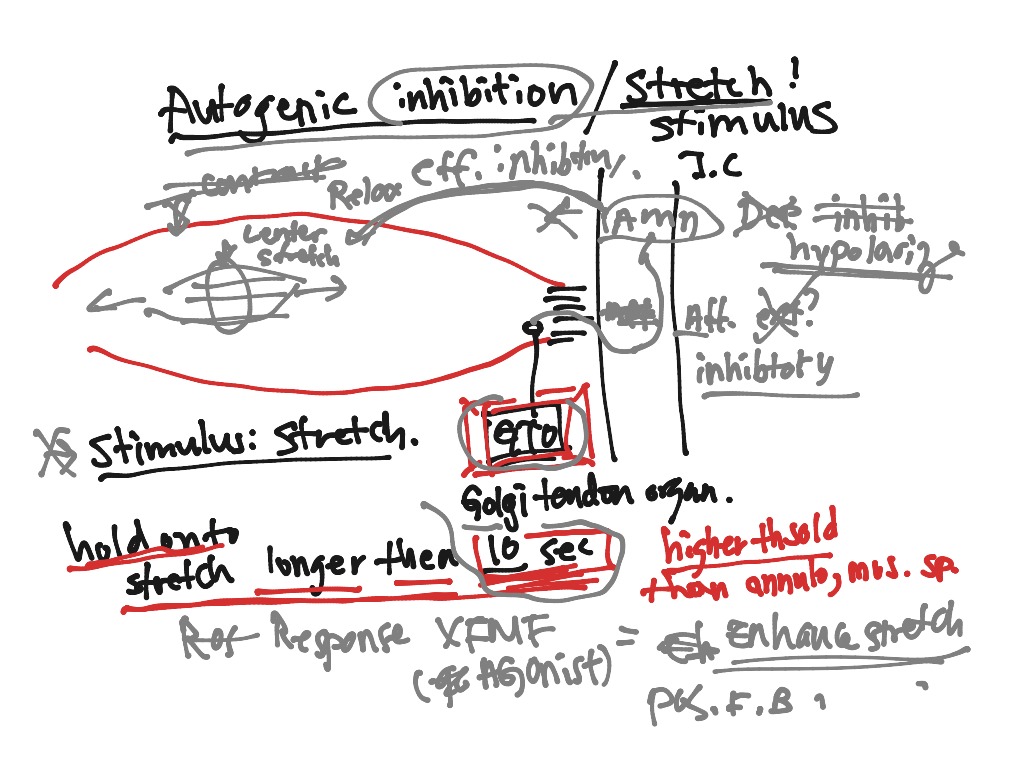 Autogenic inhibition / stretch!
stimulus
I.C
contract
Relax eff. inhibitn.
center
stretch
Amn
inhib
hypolariz
Aff.
inhibtory
stimulus: stretch.
GTO
Golgi tendon organ.
hold onto
stretch longer then 10 sec
higher thsold
than annulo, mus. sp.
Ref Response XFMF = Enhance stretch
(AGonist)
pos. F.B